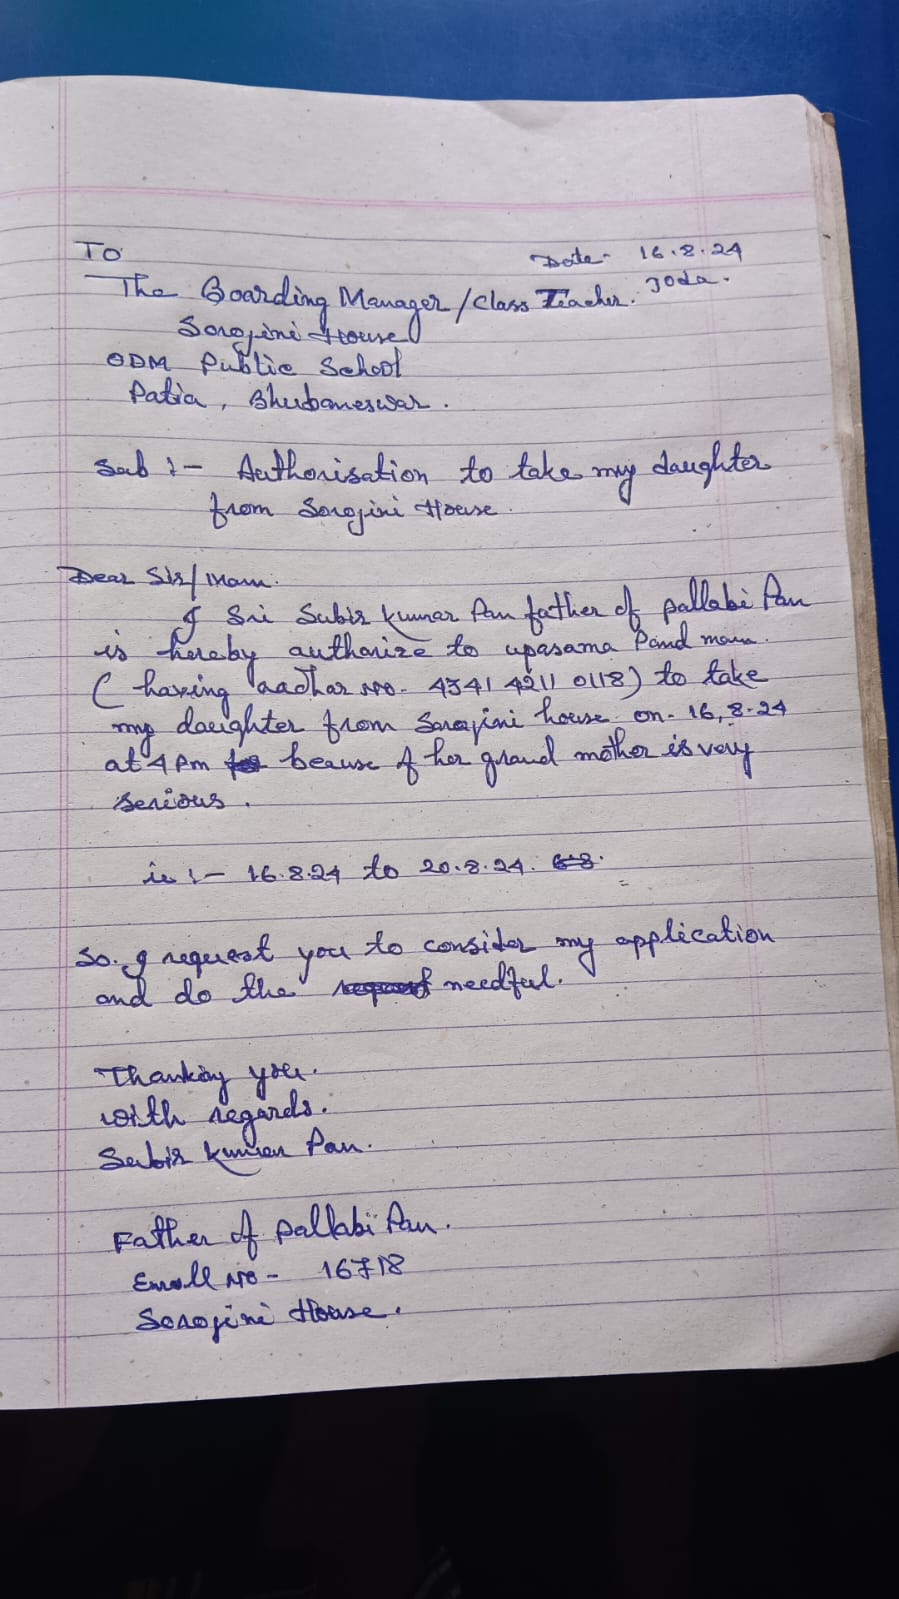 TO
Date- 16.8.24
The Boarding Manager/Class Teacher. Joda.
Sorojini House
ODM Public School
Patia, Bhubaneswar.
Sub :- Authorisation to take my daughter
from Sorojini House.
Dear Sir/Mam.
I Sri Subir Kumar Pan father of pallabi Pan
is hereby authorize to upasama Pand mam.
(having aadhar no- 4341 4211 0118) to take
my daughter from Sorojini house on- 16,8-24
at 4 Pm beause of her grand mother is very
serious.
ie :- 16.8.24 to 20.8.24.
So. I request you to consider my application
and do the needful.
Thanking you.
with regards.
Subir Kumar Pan.
Father of pallabi Pan.
Enroll No- 16718
Sorojini House.